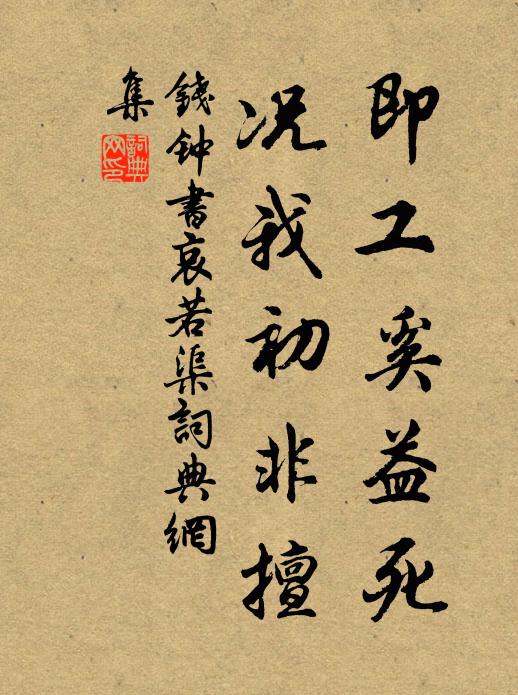 即工奚益死
况我初非擅
錢钟書哀若渠詞典網
集
詞典網印